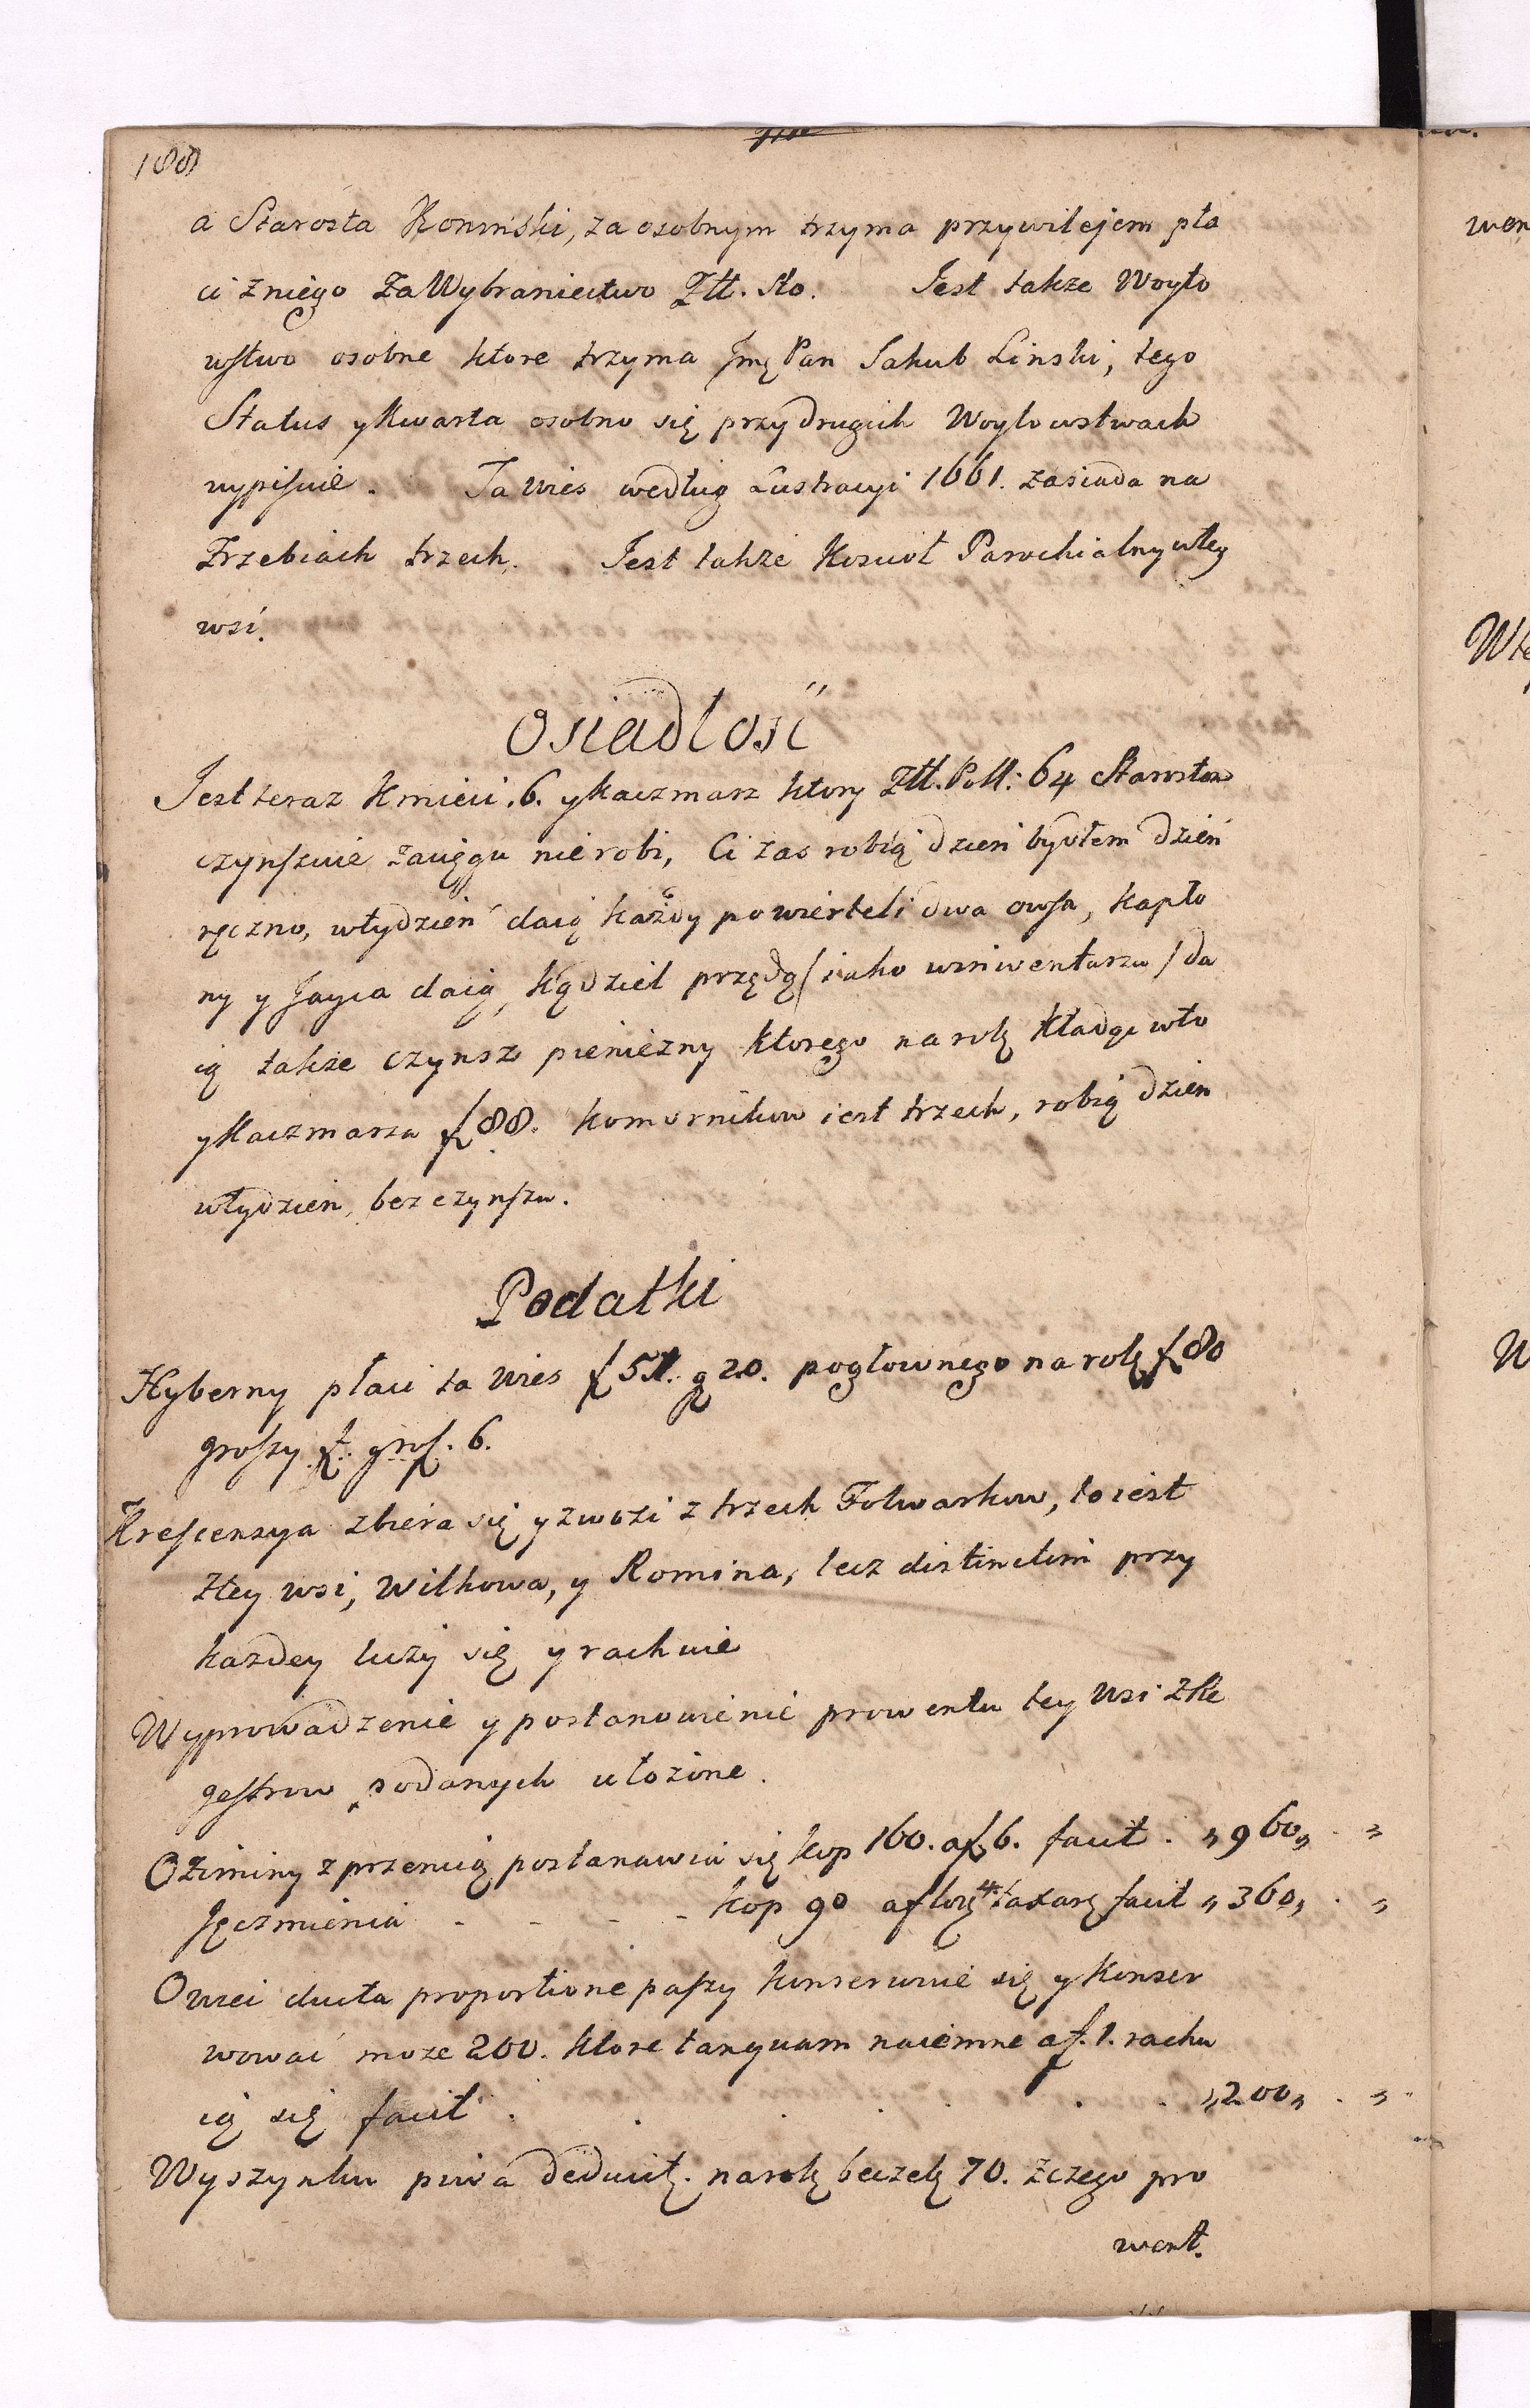 188
a Starosta Koninski, za osobnym trzyma przywilejem pła
ci z niego za Wybraniectwo Złł. sto. Jest takze Woyto
wstwo osobne ktore trzyma Jmę Pan Jakub Linski, tego
Status y Kwarta osobno się przy drugich Woytowstwach
wypisuie. Ta wies według Lustracyi 1661. zasiada na
Zrzebiach trzech. Jest takze Kosciół Parochialny w tey
wsi.
Osiadłość
Jest teraz Kmieci 6. y Kaczmarz ktory Złł. Poll: 64 Staroscie
czynszuie zacięgu nie robi, Ci zas robią dzien bydłem dzień
ręczno, w tydzień daią każdy po wierteli dwa owsa, kapło
ny y Jayca daią, kądziel przędą / iako w inwentarzu / da
ią takze czynsz pieniezny ktorego na rok kładąc w to
y Kaczmarza f 88. komornikow iest trzech, robią dzien
w tydzien, bez czynszu.
Podatki
Hyberny płaci ta wies f 51. g 20. pogłownego na rok f 80
groszy f. gros. 6.
Krescensya zbiera się y zwozi z trzech Folwarkow, to iest
z tey wsi, Wilkowa, y Romina, lecz distinctim przy
kazdey liczy się y rachuie
Wyprowadzenie y postanowienie prowentu tey wsi z Re
gestrow podanych ułozone.
Oziminy z przenicą postanawia się kop 160. a f 6. facit . „ 960 „ . „
Jęczmienia - - - - kop 90 a flor 4. taxarę facit „ 360 „ . „
Owiec ducta proportione paszy konserwuie się y konser
wować moze 200. ktore tanquam naiemne a f. 1. rachu
ią się facit . . . . . . „ 200 „ . „
Wyszynku piwa deducit. na rok beczek 70. z czego pro
went.